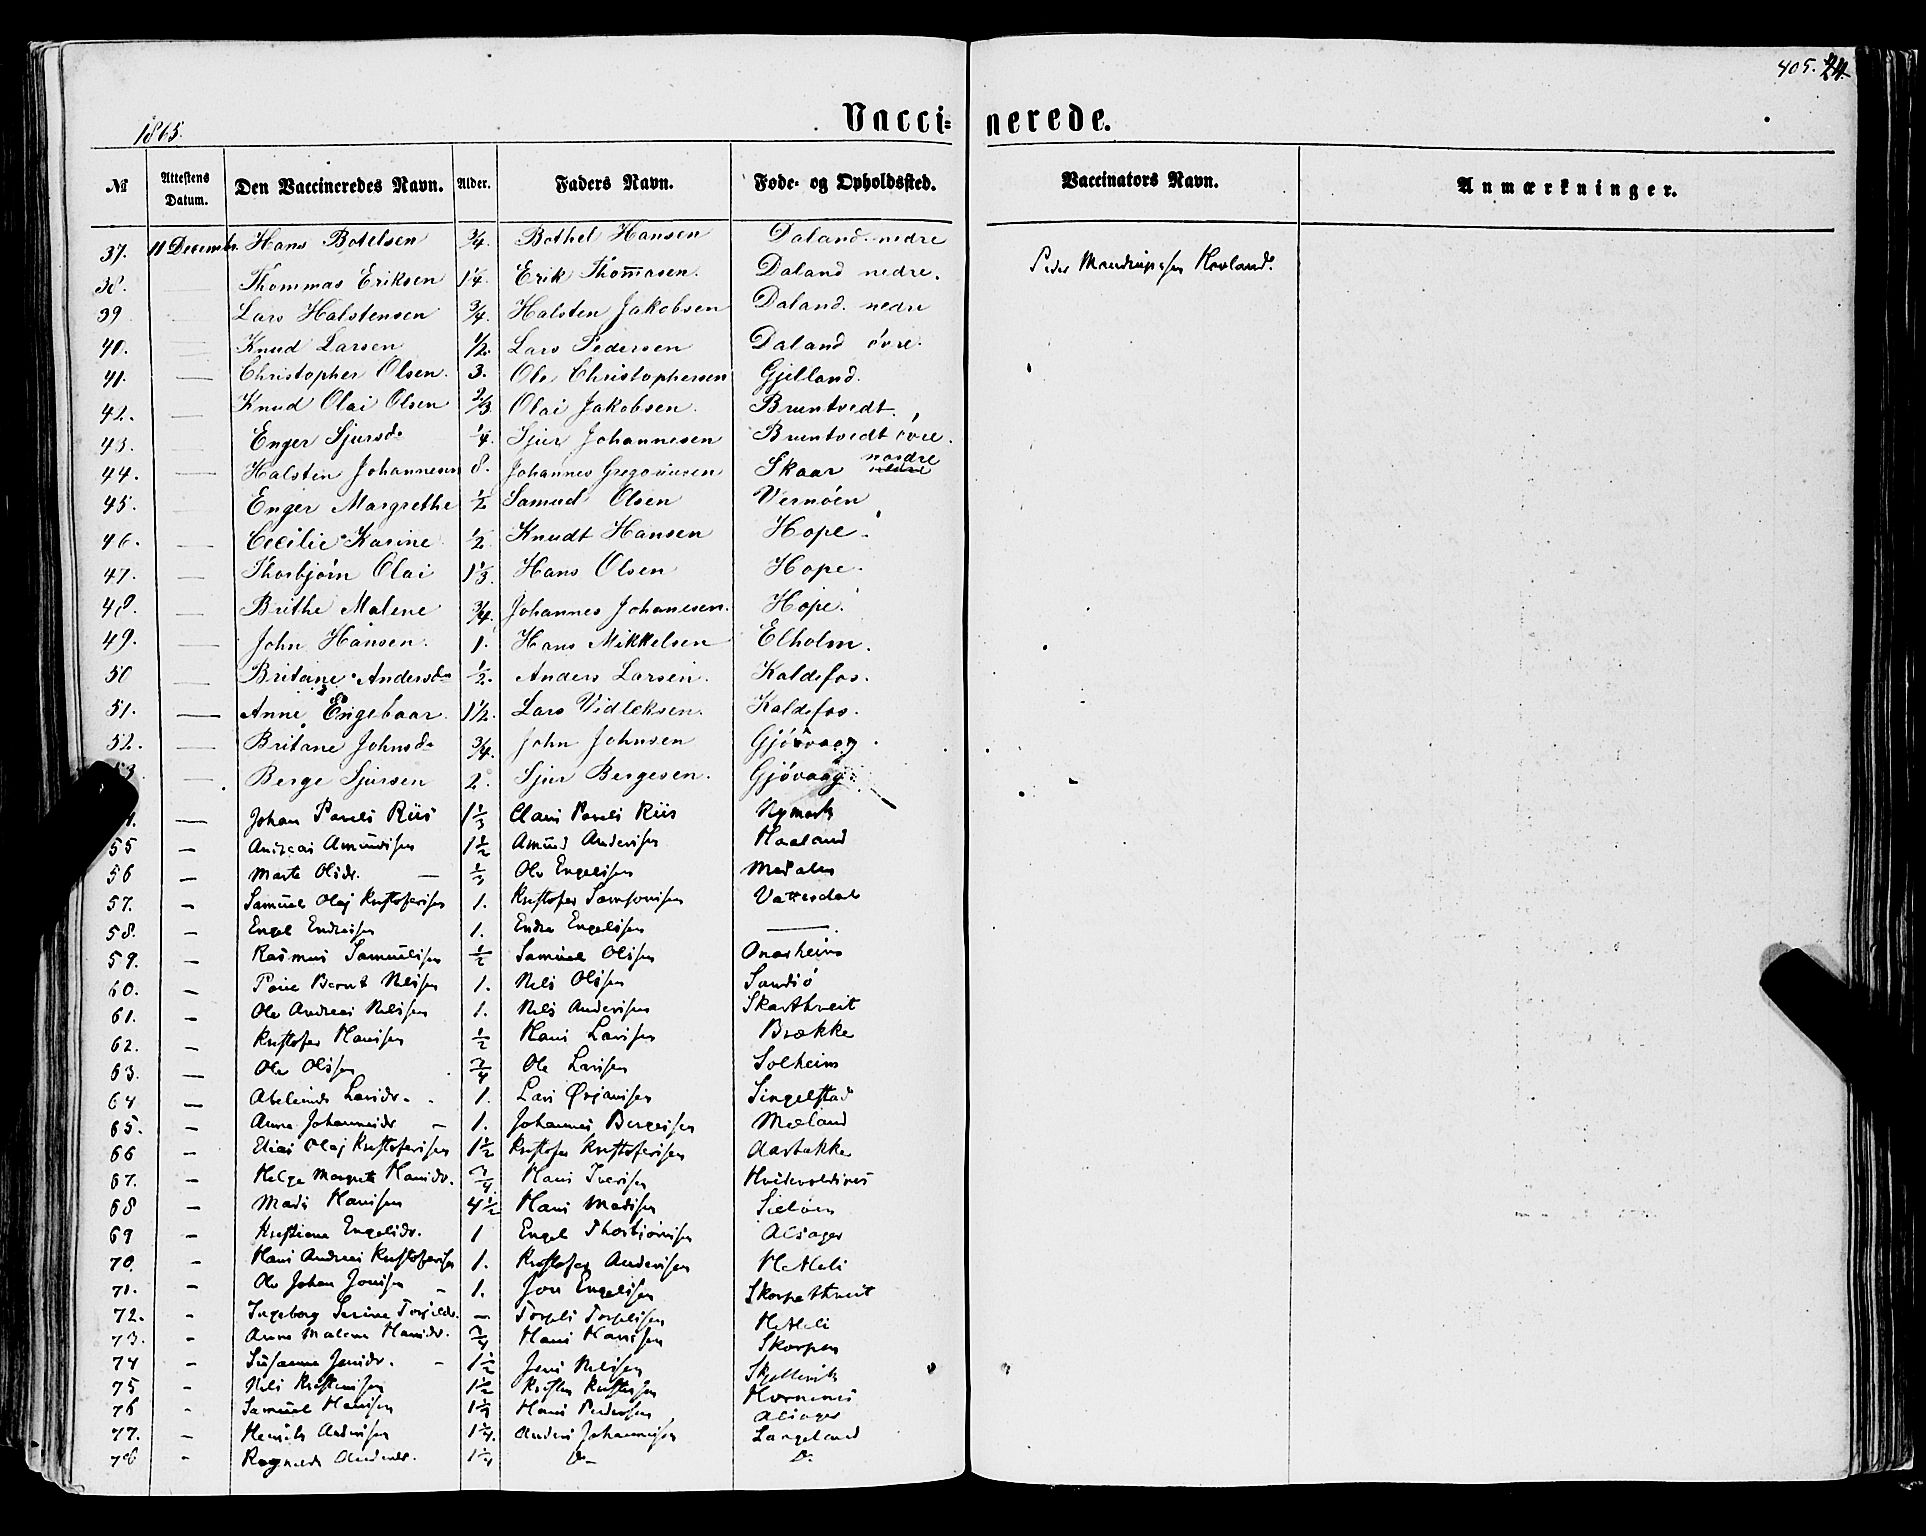 405. 24.
1865.
Vacci= nerede.
№ Attestens Datum. Den Vaccineredes Navn. Alder. Faders Navn. Føde- og Opholdssted. Vaccinators Navn. Anmærkninger.
37. 11 Decembr. Hans Botelsen 3/4. Bothel Hansen Daland nedre
38. — Thommas Eriksen 1 1/4. Erik Thom̅asen. Daland nedre. Peder Mandrupsen Hovland.
39 — Lars Halstensen 3/4. Halsten Jakobsen Daland. nedre
40. — Knud Larsen 1/2. Lars Pedersen Daland övre.
41. — Christopher Olsen. 3. Ole Christophersen Gjelland.
42. — Knud Olai Olsen 2/3 Olai Jakobsen. Bruntvedt.
43. — Enger Sjursdr 1/4. Sjur Johannesen Bruntvedt övre.
44. — Halsten Johannesen 8. Johannes Gregoriusen Skaar nordre
45. — Enger Margrethe 1/2 Samuel Olsen Vernöen
46. — Cecilie Karine 1/2 Knudt Hansen Hope.
47. — Thorbjörn Olai 1 1/3. Hans Olsen Hope.
48. — Brithe Malene 3/4. Johannes Johanesen. Hope.
49. — John Hansen. 1. Hans Mikkelsen Elholm.
50 — Britane Andersdr 1/2. Anders Larsen. Kaldefos.
51. — Anne Engebaar. 1 1/2. Lars Vidleksen. Kaldefos.
52. — Britane Johnsdr 3/4. John Johnsen Gjövaag.
— Berge Sjursen 2. Sjur Bergesen. Gjövaag.
— Johan Pavels Riis 1 1/3 Claus Pavels Riis Nymark
55 — Andreas Amundsen 1 1/2 Amund Andersen Haaland
56 — Marta Olsdr. — 1/3 Ole Engelsen Medalen
57. — Samuel Olaj Kristofersen 1. Kristofer Samsonsen Vattesdal
58. — Engel Endresen 1. Endre Engelsen —
59. — Rasmus Samuelsen 1/2 Samuel Olsen Onarheim
60. — Bernt Nelsen 1. Nels Olsen Sandsö
61. — Ole Andreas Nelsen 1. Nels Andersen Skarthveit
62. — Kristofer Hansen 1/2 Hans Larsen Brække
63. — Ole Olsen 3/4 Ole Larsen Solheim
64 — Abelina Larsdr. 1. Lars Ørjansen Singelstad
65. — Anna Johannesdr — 1. Johannes Bergesen Mæland
66 — Elias Olaj Kristofersen 1 1/2 Kristofer Kristofersen Aarbakke
67. — Helge Margreta Hansdr. 3/4 Hans Iversen
68 — Mads Hansen 4 1/2 Hans Madsen Sielöen
69 — Kristiane Engelsdr. 1 Engel Thorbjörnsen Alsager
70. — Hans Andreas Kristofersen 1. Kristofer Andersen Hetleli
71. — Ole Johan Jonsen — 1. Jon Engelsen Skorpethveit
72. — Ingeborg Serine Torjelsdr. — Torjels Torjelsen Hetleli
73. — Anna Malena Hansdr. 3/4 Hans Hansen Skorpen
74 — Susanna Jensdr. — 1 1/2 Jens Nelsen Skjellevik
75 — Nels Kristensen 1 1/2 Kristen Kristensen Hornenes
76 — Samuel Hansen 1 1/4 Hans Pedersen Alsager
77. — Henrik Andersen 1 1/4. Anders Johannesen Langeland
78 — Ragnilda Andersdr. 1 1/4 Do — Do